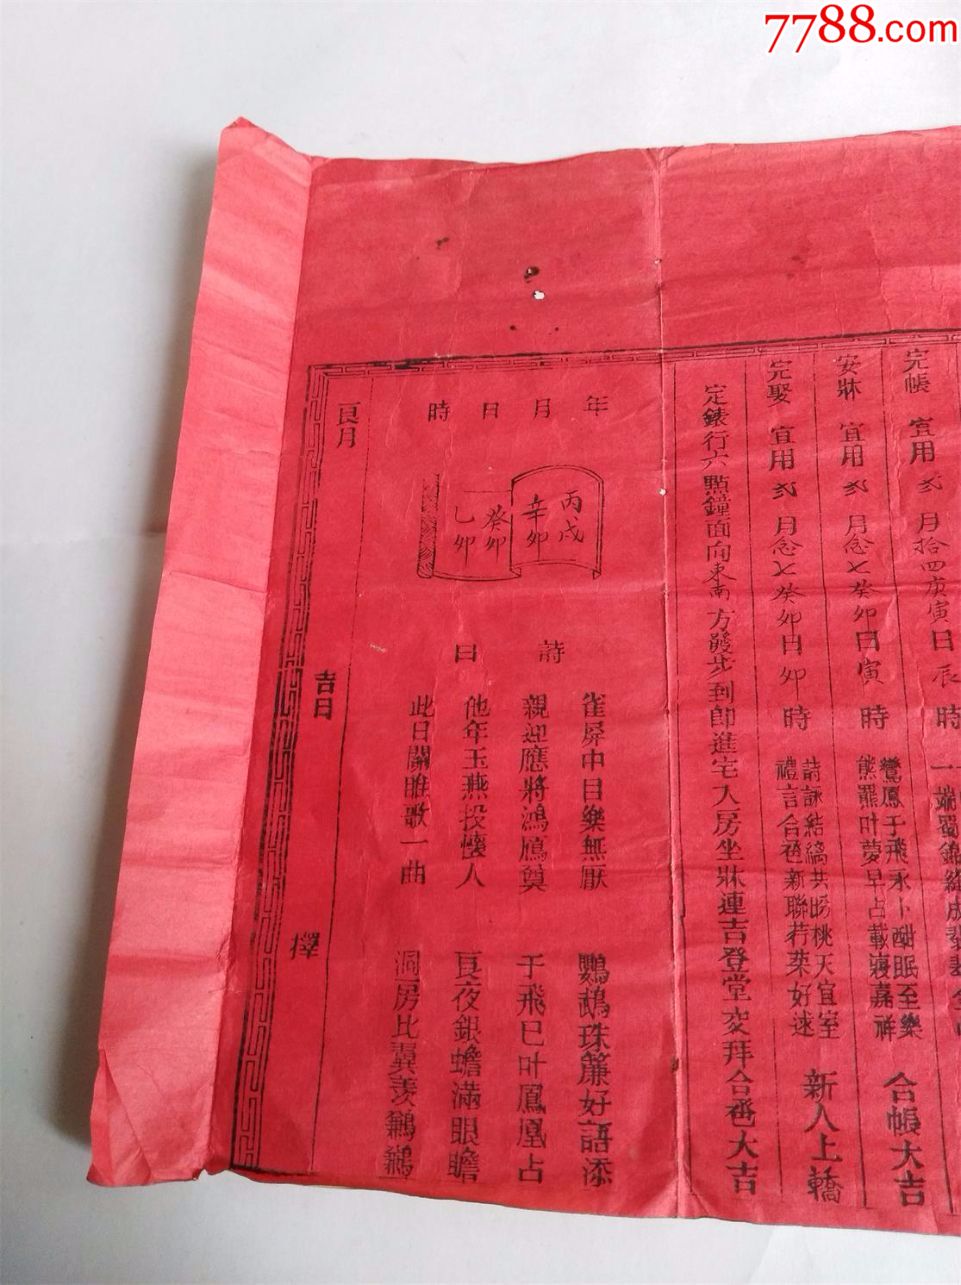 7788.com
完帳 宜用 弍 月拾四庚寅日辰 時
合帳大吉
安牀 宜用 弍 月念七癸卯日寅 時
鸞鳳于飛永卜酣眠至樂
熊羆叶夢早占載寢嘉祥
完娶 宜用 弍 月念七癸卯日卯 時
詩詠結縭共賜桃夭宜室
禮言合巹新聯荇菜好逑
新人上轎
定錶行六點鐘面向東南方發步到即進宅入房坐牀連吉登堂交拜合巹大吉
年 月 日 時
丙戌
辛卯
癸卯
乙卯
詩 曰
雀屏中目樂無厭 鸚鵡珠簾好語添
親迎應將鴻鴈奠 于飛已叶鳳凰占
他年玉燕投懷人 亙夜銀蟾滿眼瞻
此日關雎歌一曲 洞房比翼羨鶼鶼
良月 吉日 擇